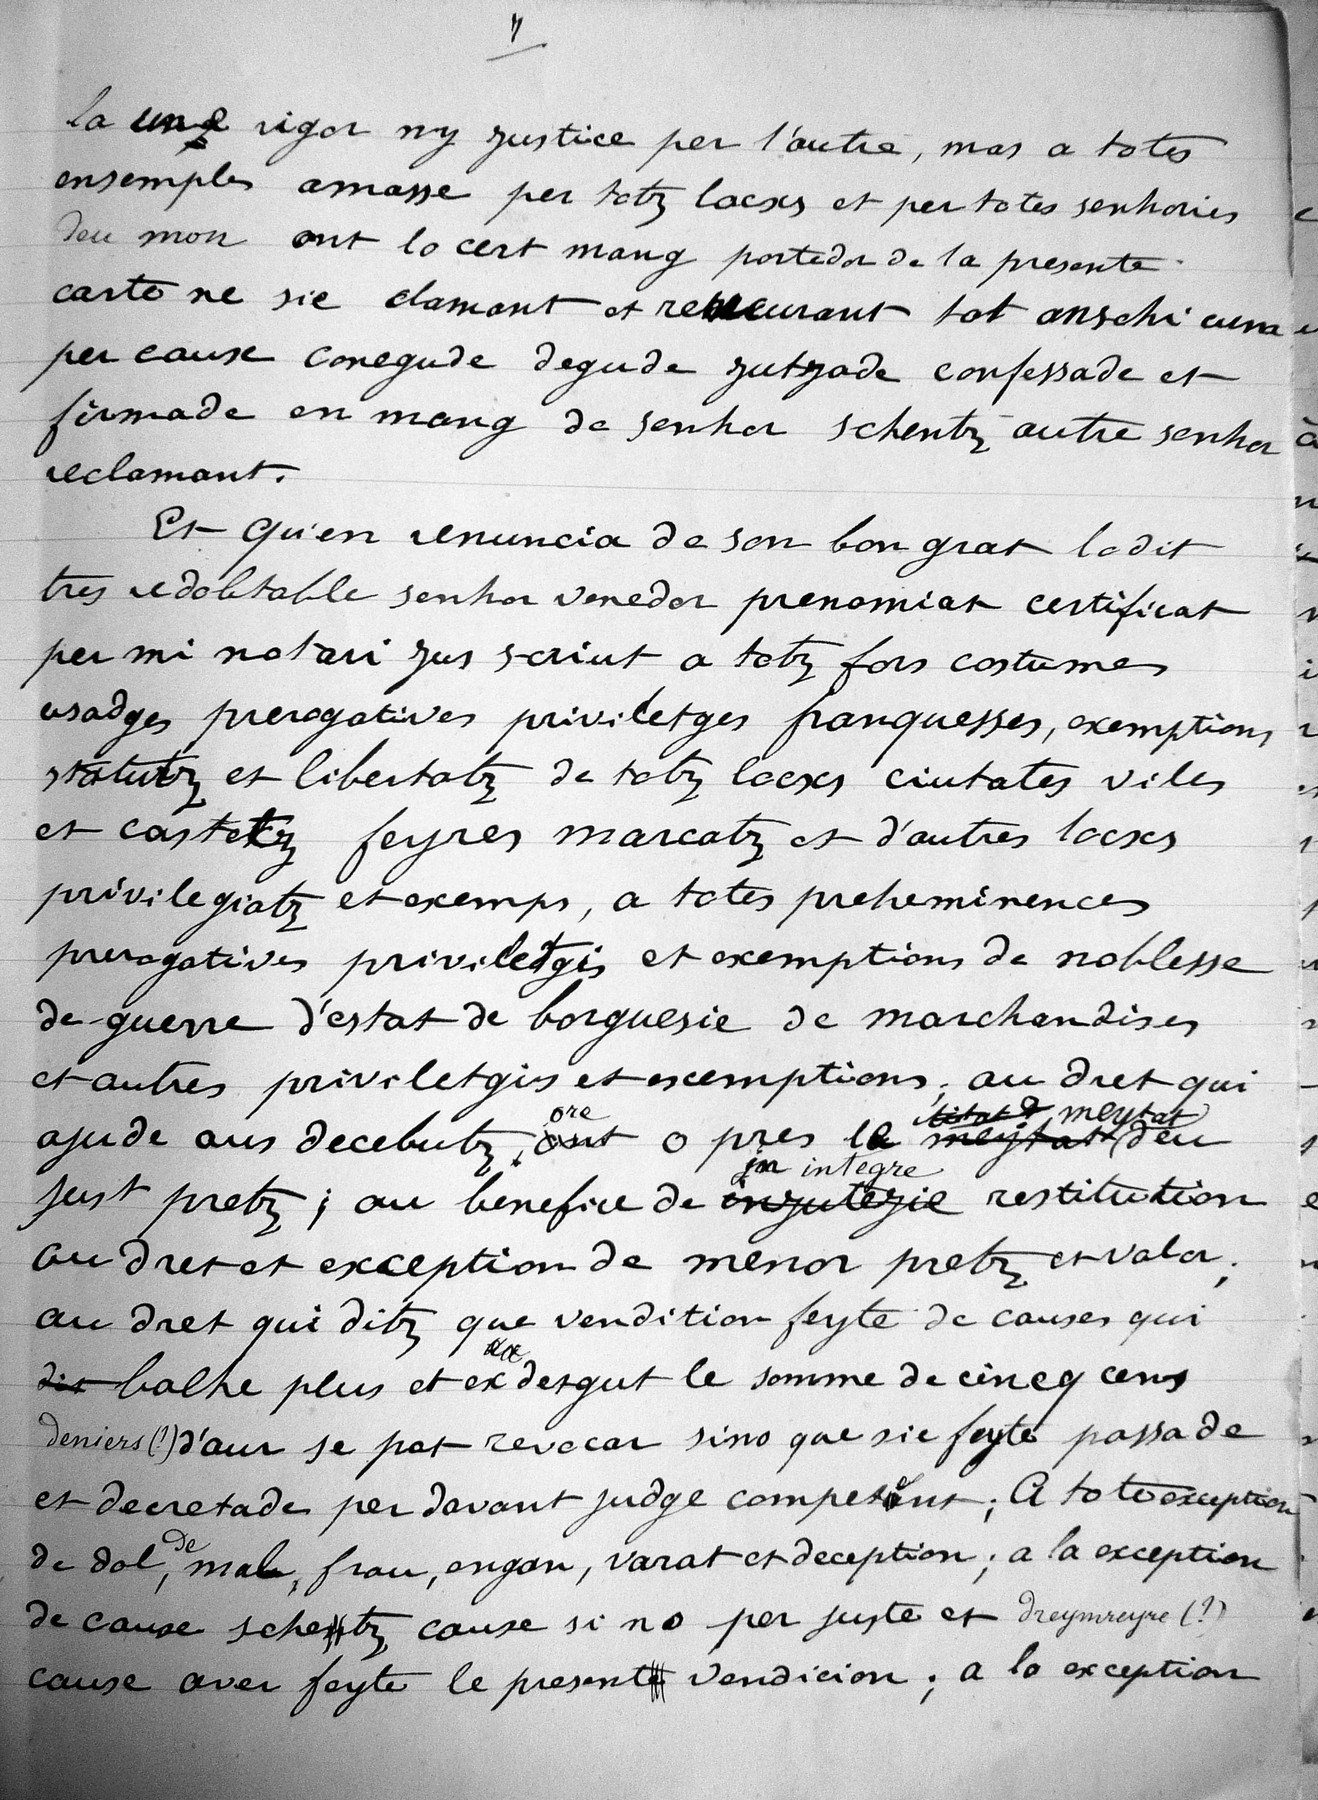 7
la une rigor ny justice per l'autre, mas a totes
ensemples amasse per totz locxs et per totes senhories
deu mon ont lo cert mang portedor de la presente
carte ne sie clamant et recurant tot anschi cum
per cause conegude degude jutjade confessade et
firmade en mang de senhor schentz autre senhor
reclamant.
Et qu'en renuncia de son bon grat lodit
tres redobtable senhor venedor prenomiat certificat
per mi notari jus scriut a totz fors costumes
usadges prerogatives priviletges franquesses, exemptions
statutz et libertatz de totz locxs ciutates viles
et castetz feyres marcatz et d'autres locxs
privilegiatz et exemps, a totes preheminences
prerogatives priviletgis et exemptions de noblesse
de guerre d'estat de borguesie de marchandises
et autres priviletgis et exemptions; au dret qui
ajude aus decebutz, ore o pres la meytat deu
just pretz; au benefice de in integre restitution
au dret et exception de menor pretz et valor;
au dret qui ditz que vendition feyte de causes qui
balhe plus et ex desgut le somme de cincq cens
deniers (?) d'aur se pot revocar sino que sie feyte passade
et decretade per davant judge competent; A tote exception
de dol, de mal, frau, engan, varat et deception; a la exception
de cause schentz cause si no per juste et dreymreyre (?)
cause aver feyte le present vendicion; a la exception